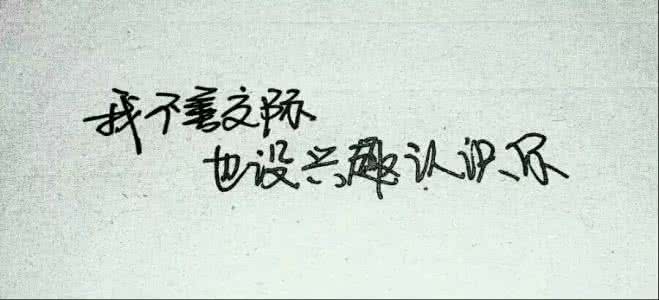 我不善交际
也没兴趣认识你